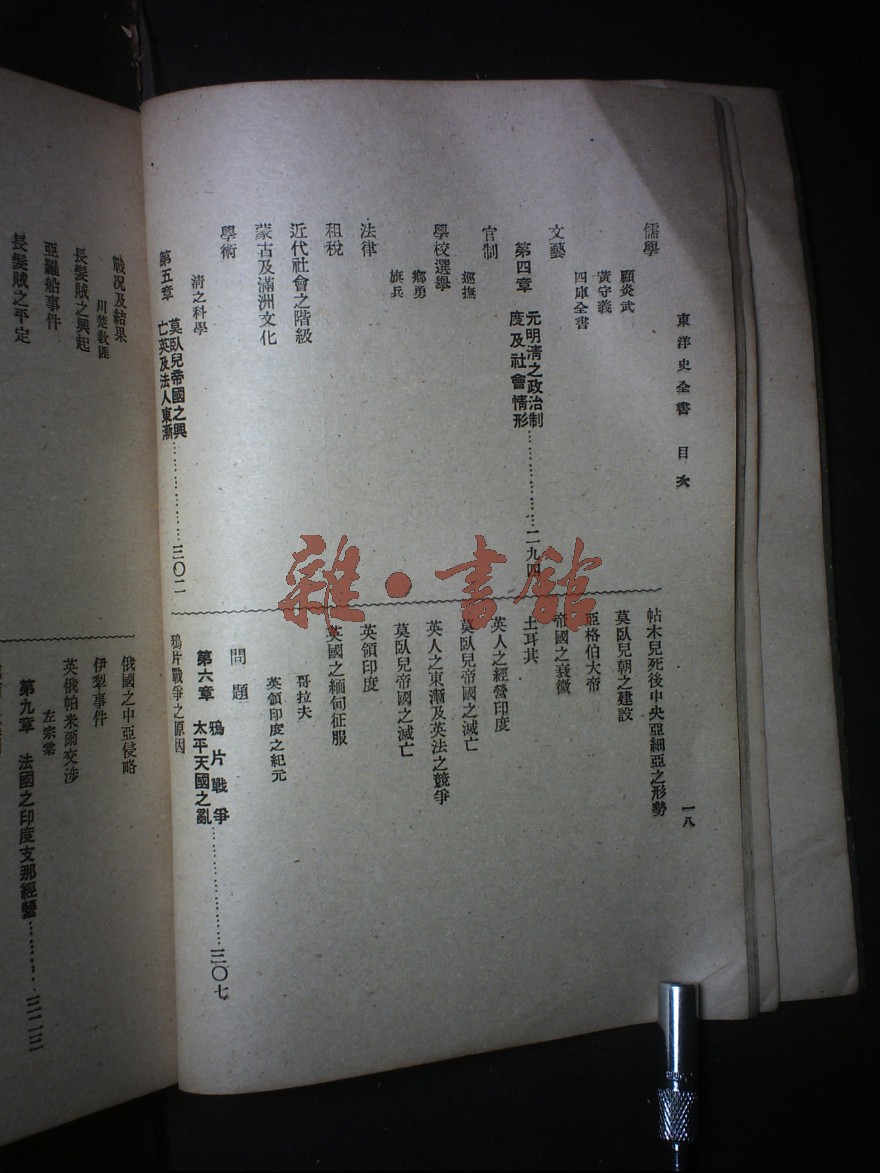 東洋史全書 目次
一八
儒學
顧炎武
黃守義
四庫全書
文藝
第四章 元明清之政治制
度及社會情形……………二九四
官制
巡撫
學校選舉
鄉勇
旗兵
法律
租稅
近代社會之階級
蒙古及滿洲文化
學術
清之科學
第五章 莫臥兒帝國之興
亡英及法人東漸……………三〇二
帖木兒死後中央亞細亞之形勢
莫臥兒朝之建設
亞格伯大帝
帝國之衰微
土耳其
英人之經營印度
莫臥兒帝國之滅亡
英人之東漸及英法之競爭
莫臥兒帝國之滅亡
英領印度
英國之緬甸征服
哥拉夫
英領印度之紀元
問題
第六章 鴉片戰爭
太平天國之亂……………三〇七
鴉片戰爭之原因
戰况及結果
川楚教匪
長髮賊之興起
亞羅船事件
長髮賊之平定
俄國之中亞侵略
伊犁事件
英俄帕米爾交涉
左宗棠
第九章 法國之印度支那經營………三二三
雜·書館